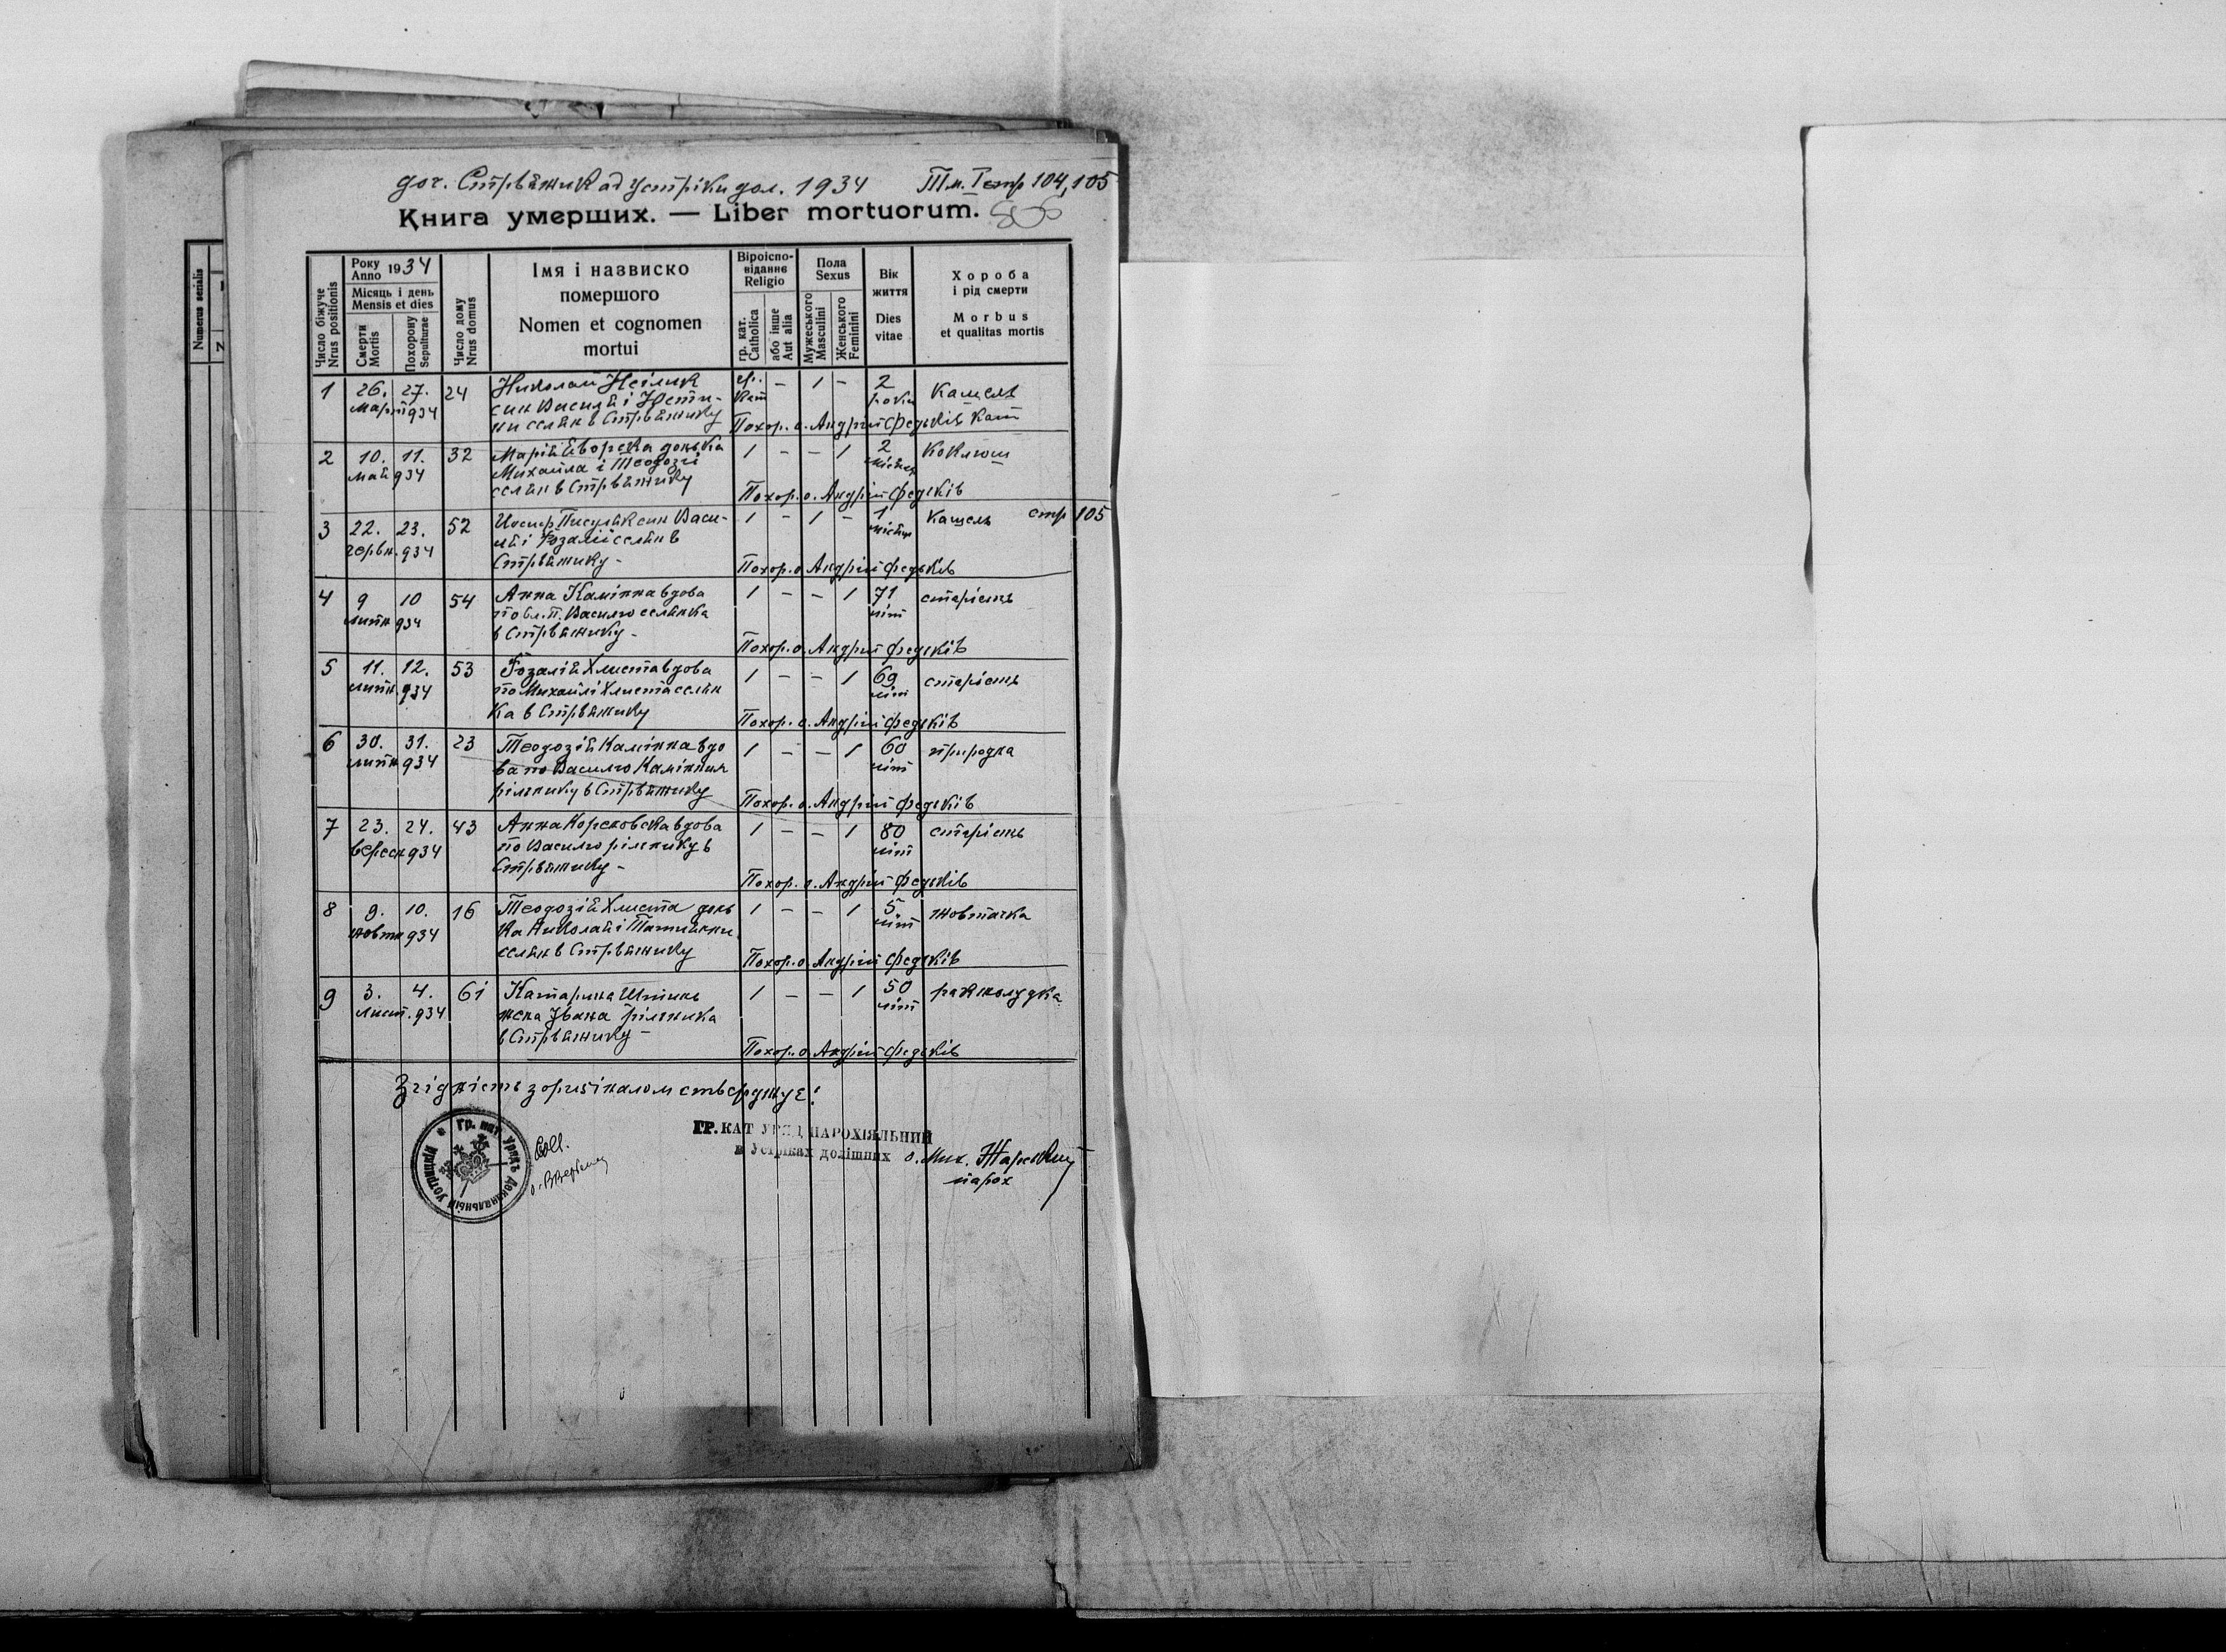 доч. Стрвяжик ад Устріки дол. 1934 Тм. I стр 104, 105
Книга умерших. — Liber mortuorum.
Numerus serialis
Число біжуче
Nrus positionis
Року
Anno 1934
Місяць і день
Mensis et dies
Смерти
Mortis
Похорону
Sepulturae
Число дому
Nrus domus
Імя і назвиско
помершого
Nomen et cognomen
mortui
Віроіспо-
віданнє
Religio
гр. кат.
Catholica
або інше
Aut alia
Пола
Sexus
Мужеського
Masculini
Женського
Feminini
Вік
життя
Dies
vitae
Хороба
і рід смерти
Morbus
et qualitas mortis
1 26. 27. 24 Николай гр. — 1 — 2 Кашель
март 934 син Василя і кат роки
ни селян в Стрвяжику Похор. о. Андрій Федьків кат
2 10. 11. 32 Марія Яворска донька 1 — — 1 2 Коклюш
май 934 Михайла і Теодозії місяці
селян в Стрвяжику Похор. о. Андрій Федьків
3 22. 23. 52 Йосиф Писуляк син Васи- 1 — 1 — 1 Кашель стр 105
червн. 934 ля і Розалії селян в місяць
Стрвяжику — Похор. о Андрій Федьків
4 9 10 54 Анна Камінна вдова 1 — — 1 71 старість
липн 934 по бл. п. Василю селянка літ
в Стрвяжику — Похор. о. Андрій Федьків
5 11. 12. 53 Розалія Хлиста вдова 1 — — 1 69 старість
липн. 934 по Михайлі Хлиста селян літ
ка в Стрвяжику Похор. о. Андрій Федьків
6 30. 31. 23 Теодозія Камінна вдо 1 — — 1 60 природна
липн 934 ва по Василю Камінним літ
рільнику в Стрвяжику Похор. о. Андрій Федьків
7 23. 24. 43 Анна вдова 1 — — 1 80 старість
вересн 934 по Василю рільнику в літ
Стрвяжику — Похор. о. Андрій Федьків
8 9. 10. 16 Теодозія Хлиста донь 1 — — 1 5 жовтачка
жовтн 934 ка Николая і Татіянни літ
селян в Стрвяжику Похор. о. Андрій Федьків
9 3. 4. 61 Катарина 1 — — 1 50 рак жолудка
Лист. 934 жена Івана рільника літ
в Стрвяжику — Похор. о. Андрій Федьків
Згідність з оригіналом стверджує:
ГР. КАТ УРЯД ПАРОХІЯЛЬНИЙ
в Устріках долішних о. Мих. Жарский
парох
Coll.